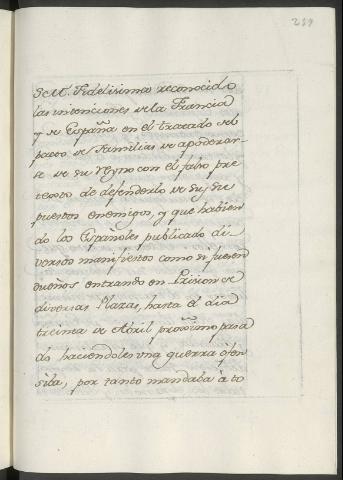 239
S.M. Fidelisima reconocido
las intenciones de la Francia
y de España en el tratado del
pacto de Familias de apoderar-
se de su Reyno con el falso pre
testo de defenderlo de sus su
puestos enemigos, y que habien
do los Españoles publicado di
versos manifiestos como si fuesen
dueños entrando en Prision de
diversas Plazas, hasta el dia
treinta de Abril proximo pasa
do haciendoles una guerra ofen
siba, por tanto mandaba à to